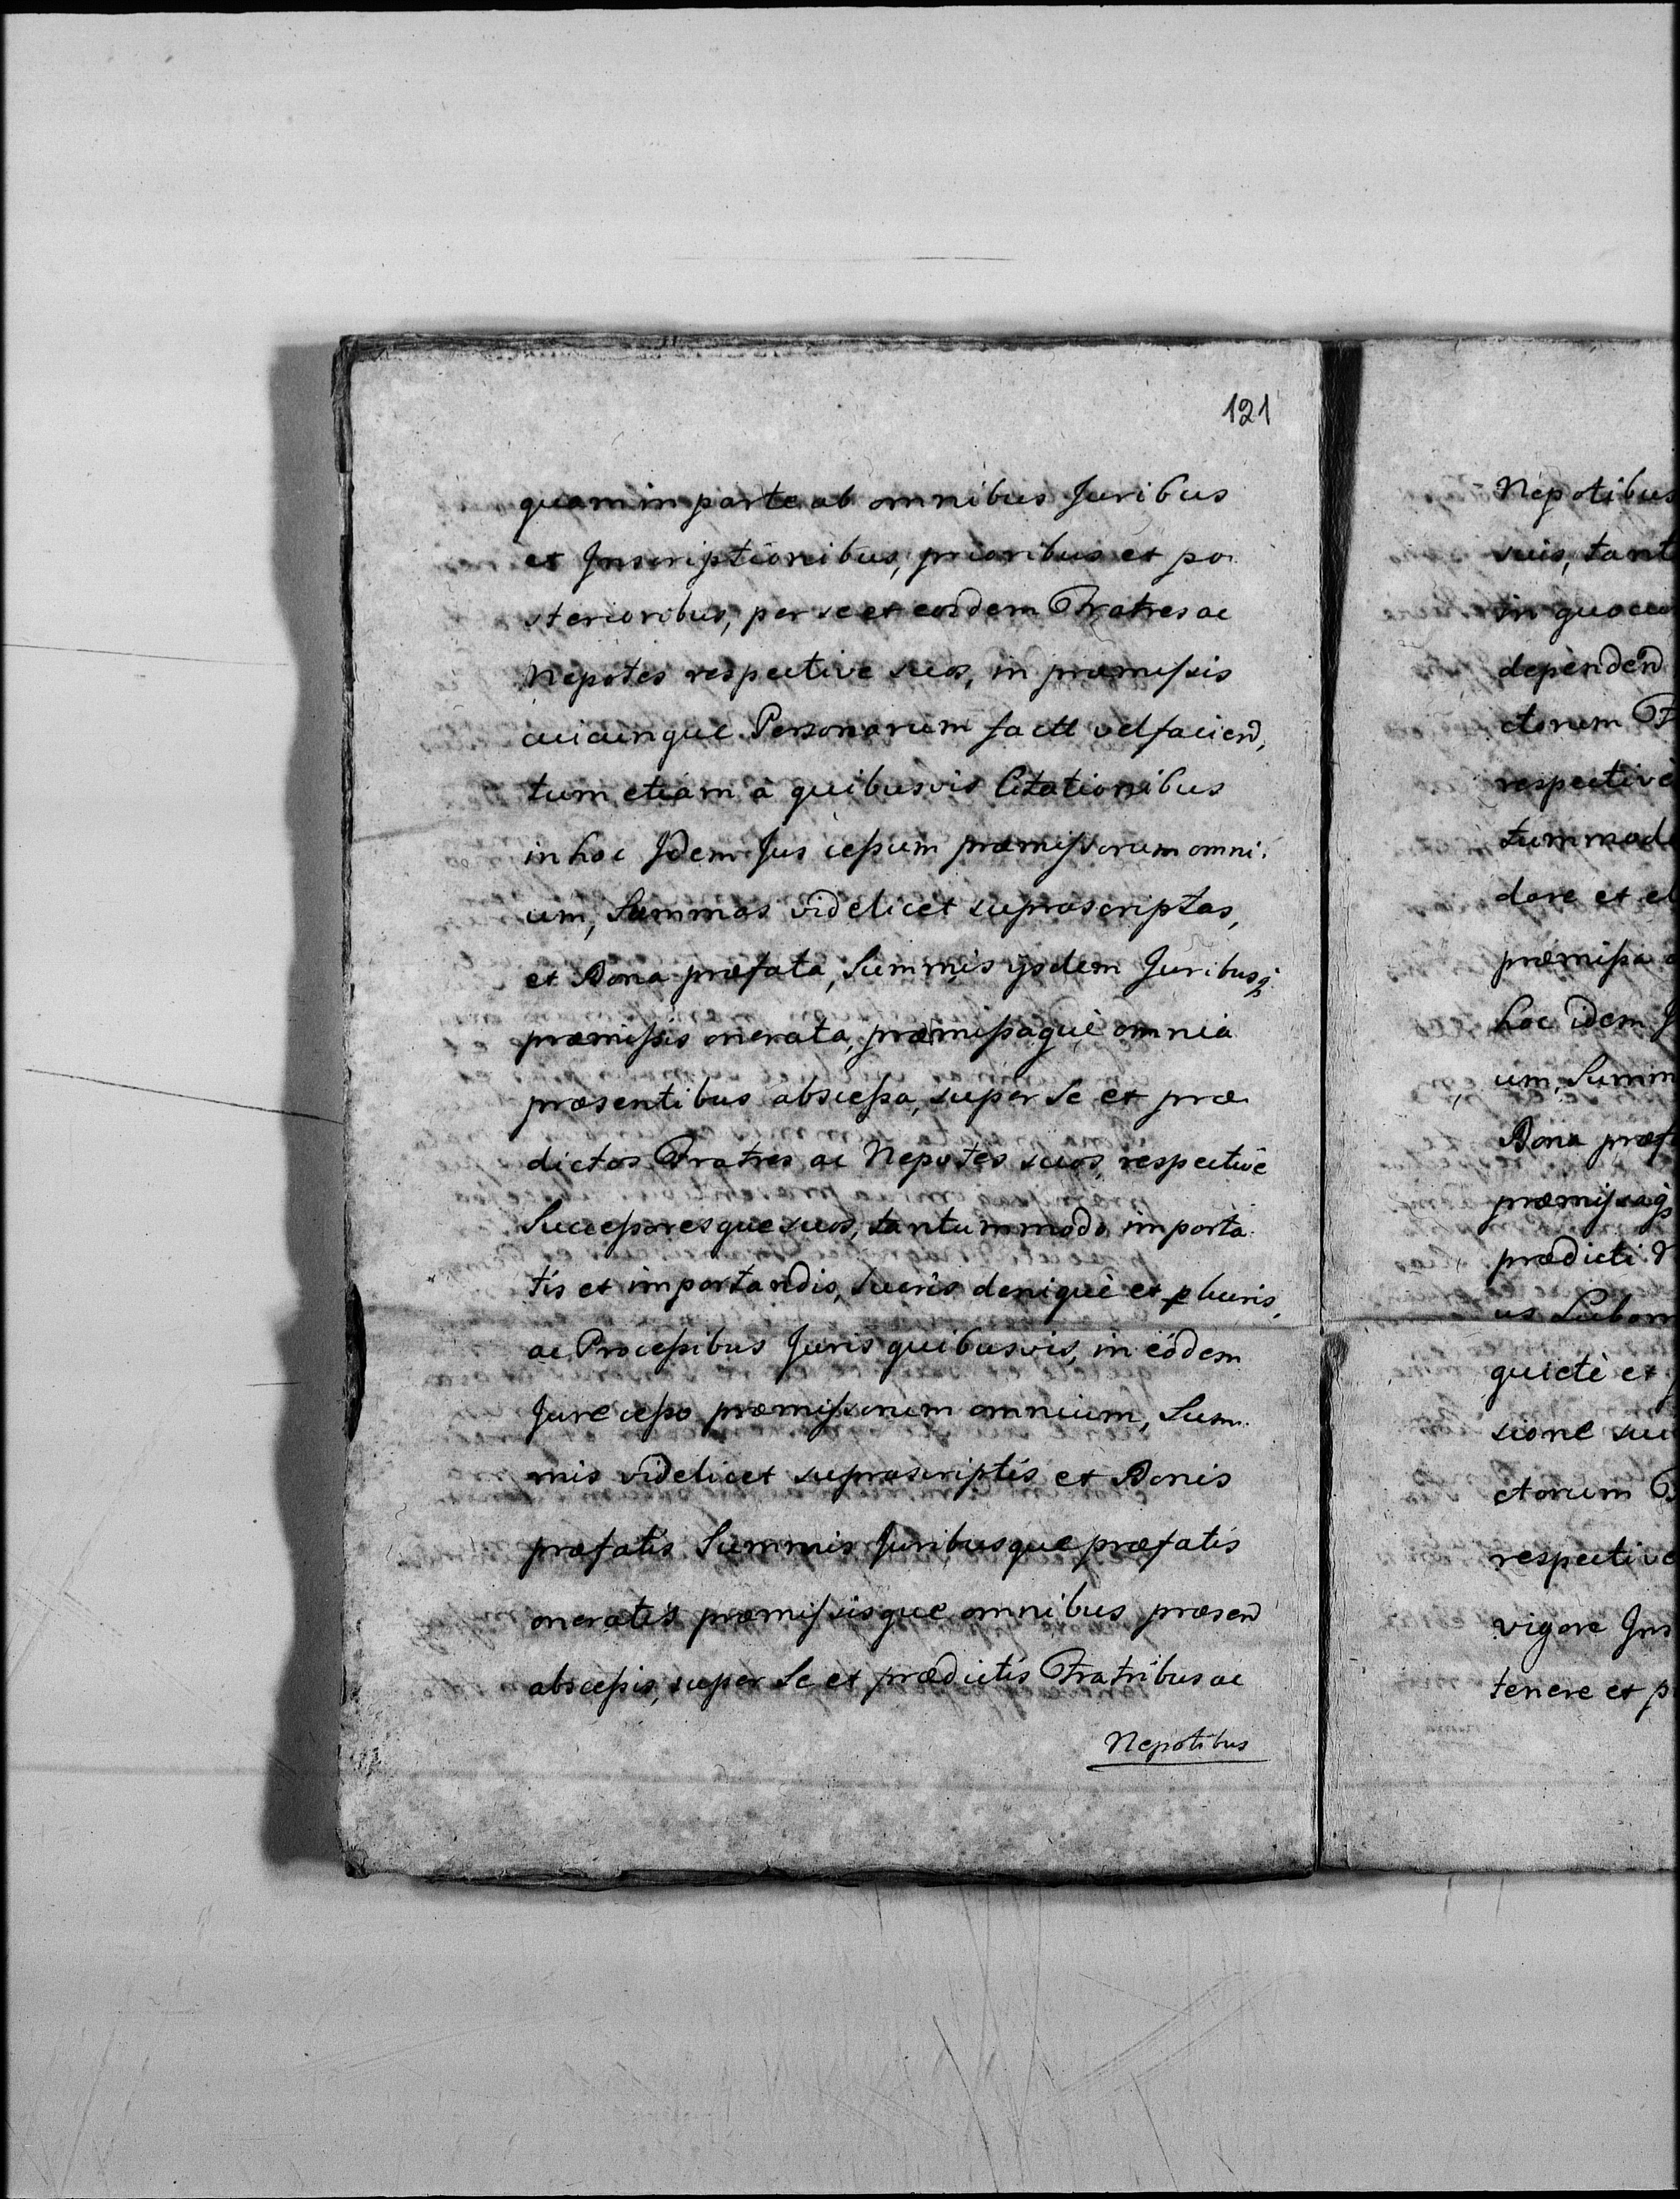 121
quam in parte ab omnibus Juribus
et Inscriptionibus, prioribus et po
sterioribus, per se et eosdem Fratres ac
Nepotes respective suos, in præmissis
cuicunque Personarum factt vel faciend,
tum etiam à quibusvis Citationibus
in hoc Idem Jus cessum præmissorum omni.
um, Summas videlicet suprascriptas,
et Bona præfata, Summis ijsdem Juribusq̃
præmissis onerata, præmissaquè omnia
præsentibus abscessa, super Se et præ
dictos Fratres ac Nepotes suos, respectivè
Successoresque suos, tantummodo importa
tis et importandis, lucris deniquè et pluris,
ac Processibus Juris quibusvis, in eôdem
Jure cesso præmissorum omnium, Sum
mis videlicet suprascriptis et Bonis
præfatis Summis Juribusque præfatis
oneratis præmissisque omnibus præsen
abscessis, super Se et prædictis Fratribus ac
Nepotibus
Nepotibus
suis, tant
in quocu
dependen
ctorum F
respectivè
tummod
dare et e
præmissa
hoc idem J
um, Summ
Bona præf
præmissaq̃
prædicti
us Lubom
quietè et
sione su
ctorum
respective
vigore Ins
tenere et p